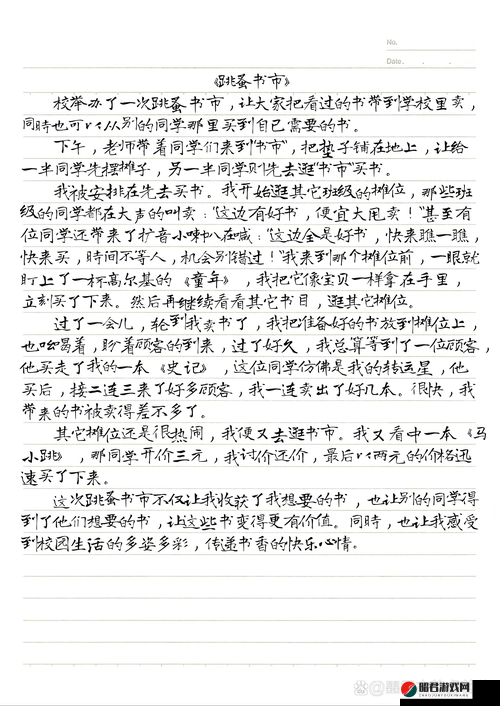 No.
Date. . .
《跳蚤书市》
校举办了一次跳蚤书市，让大家把看过的书带到学校里卖，
同时也可以从别的同学那里买到自己需要的书。
下午，老师带着同学们来到“书市”，把垫子铺在地上，让给
一半同学先摆摊子，另一半同学则先去逛“书市”买书。
我被安排在先去买书。我开始逛其它班级的摊位，那些班
级的同学都在大声的叫卖：“这边有好书，便宜大甩卖！”甚至有
位同学还带来了扩音小喇叭在喊：“这边全是好书，快来瞧一瞧，
快来买，时间不等人，机会别错过！”我来到那个摊位前，一眼就
盯上了一杯高尔基的《童年》，我把它像宝贝一样拿在手里，
立刻买了下来。然后再继续看看其它书目，逛其它摊位。
过了一会儿，轮到我卖书了，我把准备好的书放到摊位上，
也吆喝着，盼着顾客的到来，过了好久，我总算等到了一位顾客，
他买走了我的一本《史记》，这位同学仿佛是我的转运星，他
买后，接二连三来了好多顾客，我一连卖出了好几本。很快，我
带来的书被卖得差不多了。
其它摊位还是很热闹，我便又去逛书市。我又看中一本《马
小跳》，那同学开价三元，我讨价还价，最后以两元的价格迅
速买了下来。
这次跳蚤书市不仅让我收获了我想要的书，也让别的同学得
到了他们想要的书，让这些书变得更有价值。同时，也让我感受
到校园生活的多姿多彩，传递书香的快乐心情。
昭君游戏网